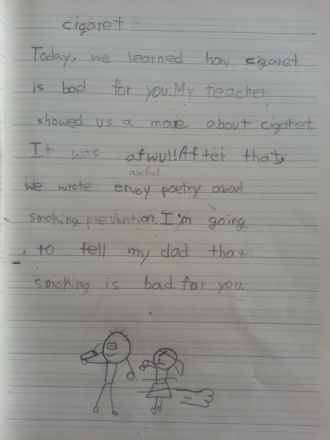 cigaret
Today, we learned how cigaret
is bad for you. My teacher
showed us a move about cigaret.
It was afwul! After that,
awful
we wrote envoy poetry about
smoking prevention. I'm going
to tell my dad that
smoking is bad for you.